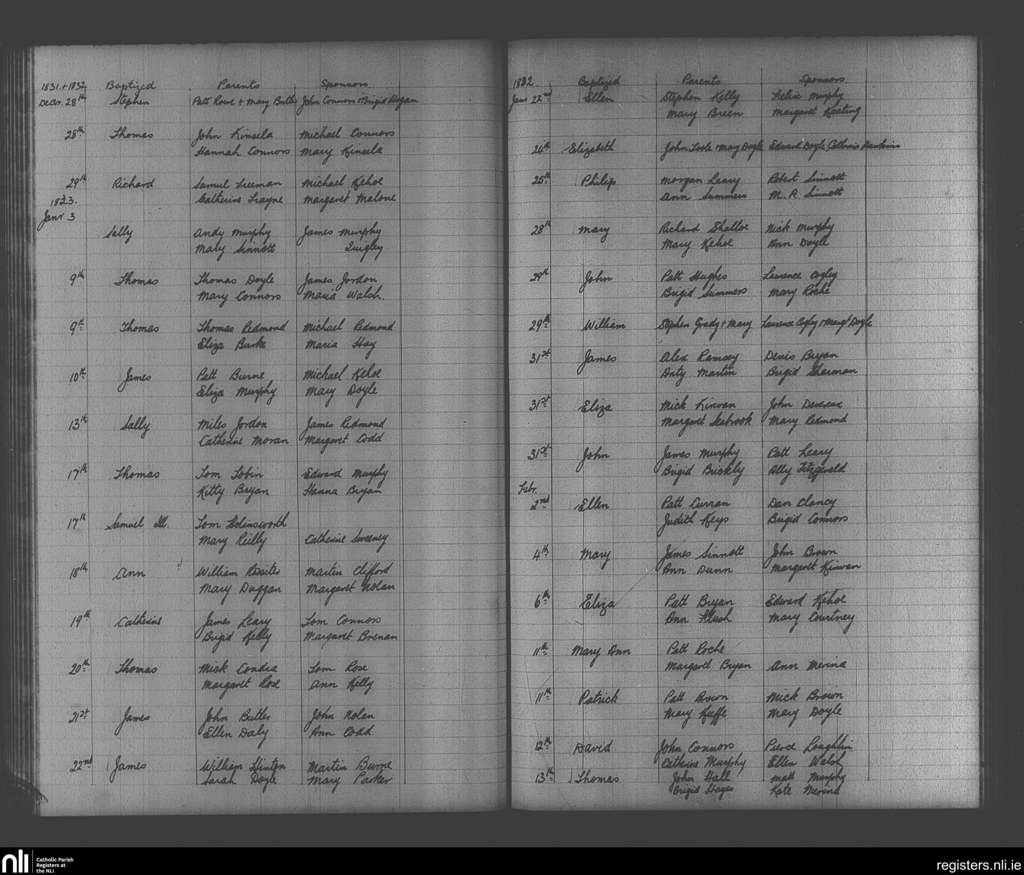 1831 + 1832 Baptized Parents Sponsors
Decr. 28th Stephen Patt Rowe + Mary Butler John Connors + Brigid Bryan
28th Thomas John Kinsela Michael Connors
Hannah Connors Mary Kinsela
29th Richard Samuel Michael Kehoe
Catherine Margaret Malone
1823.
Janr 3
Sally Andy Murphy James Murphy
Mary Sinnott Quigley
9th Thomas Thomas Doyle James Jordon
Mary Connors Maria Walsh.
9th Thomas Thomas Redmond Michael Redmond
Eliza Burke Maria Hay
10th James Patt Burne Michael Kehoe
Eliza Murphy Mary Doyle
13th Sally Miles Jordon James Redmond
Catherine Moran Margaret Codd
17th Thomas Tom Tobin Edward Murphy
Kitty Bryan Hanna Bryan
17th Samuel Tom
Mary Reilly Catherine Sweeney
18th Ann William Martin Clifford
Mary Duggan Margaret Nolan
19th Catherine James Leary Tom Connors
Brigid Kelly Margaret Brenan
20th Thomas Mick Condra Tom Rose
Margaret Rose Ann Kelly
21st James John Butler John Nolan
Ellen Daly Ann Codd
22nd James William Hinton Martin Burne
Sarah Doyle Mary Parker
1832 Baptized Parents Sponsors
Janr 22nd Ellen Stephen Kelly Felix Murphy
Mary Breen Margaret Keating
24th Elizabeth John Toole + Mary Doyle Edward Doyle Catherine Hawkins
25th Philip Morgan Leary Robert Sinnott
Ann Summers M. R. Sinnott
28th Mary Richard Shalloe Nick Murphy
Mary Kehoe Ann Doyle
29th John Patt Hughes Laurence Cogley
Brigid Summers Mary Roche
29th William Stephen Grady + Mary Laurence Cogley + Margt Doyle
31st James Alex Ramsey Denis Bryan
Anty Martin Brigid Sherman
31st Eliza Mick Kirwan John Devereux
Margaret Seabrook Mary Redmond
31st John James Murphy Patt Leary
Brigid Buckly Ally Fitzgerald
Febr.
2nd Ellen Patt Curran Dan Clancy
Judith Keys Brigid Connors
4th Mary James Sinnott John Brown
Ann Dunn Margaret Kirwan
6th Eliza Patt Bryan Edward Kehoe
Ann Mary Courtney
11th Mary Ann Patt Roche
Margaret Bryan Ann
11th Patrick Patt Brown Mick Brown
Mary Keffe Mary Doyle
12th David John Connors Pierce Loughlin
Catherine Murphy Ellen Walsh
13th Thomas John Hall Matt Murphy
Brigid Hayes Kate
nli Catholic Parish
Registers at
the NLI
registers.nli.ie